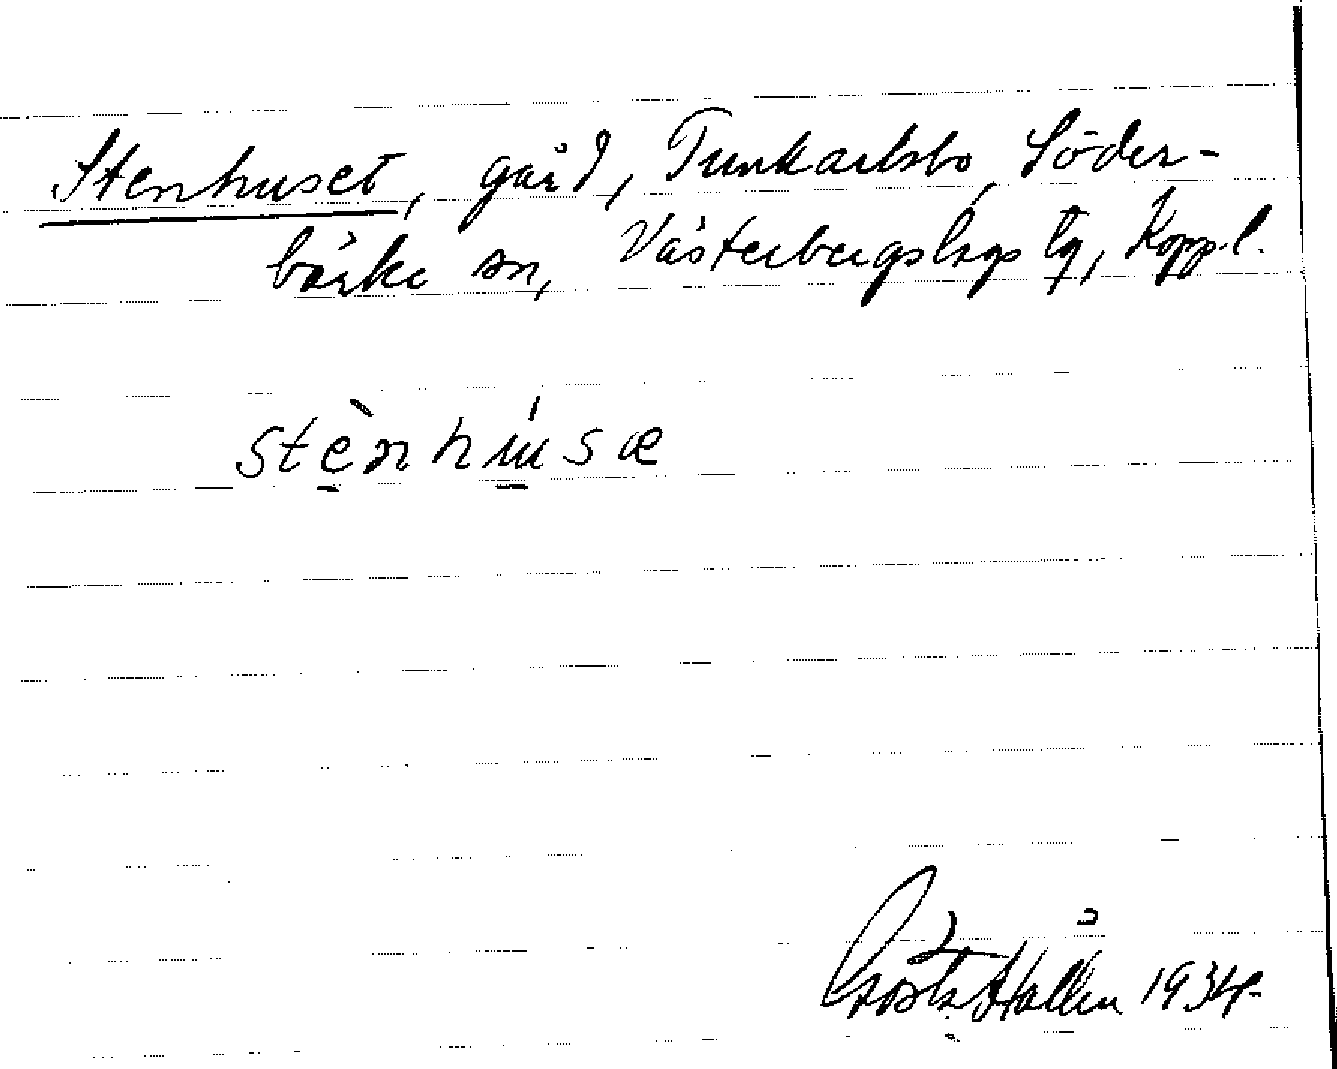 Stenhuset, gård, Tunkarlsbo, Söder-
bärke sn, Västerbergslags tg, Koppl.
stè̱nhú̱sæ
Gösta Hållén 1934.